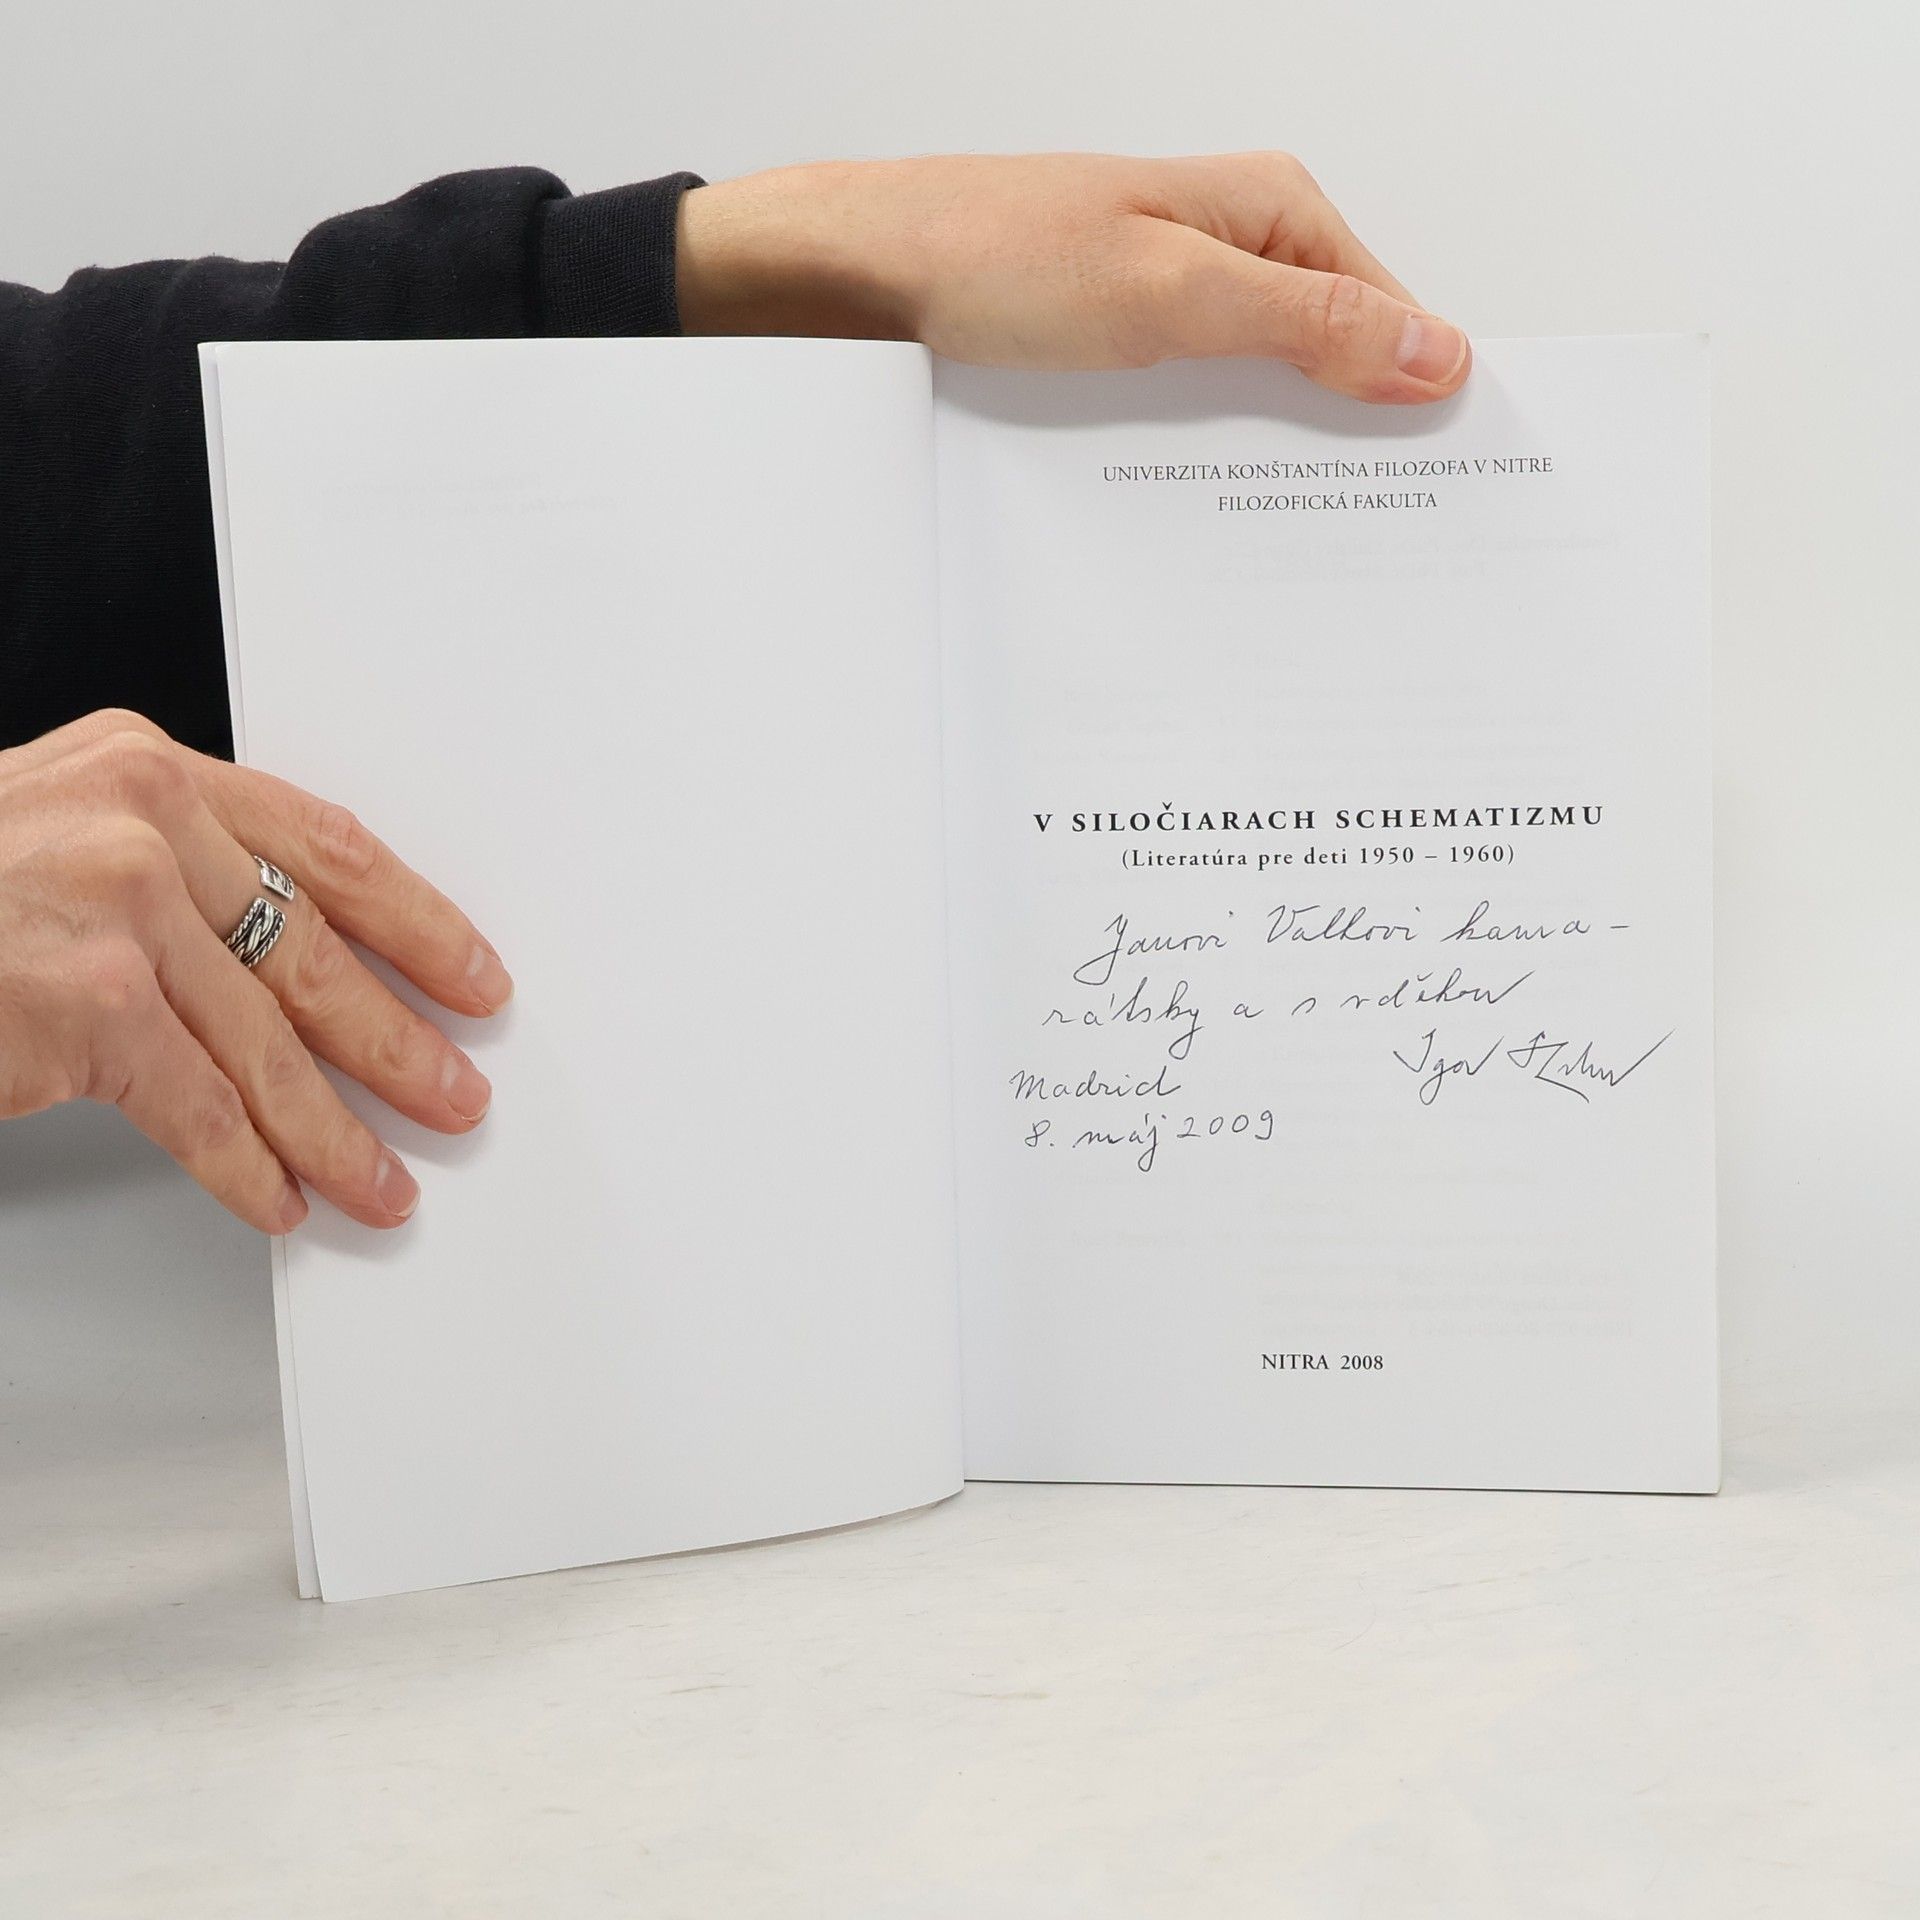 UNIVERZITA KONŠTANTÍNA FILOZOFA V NITRE
FILOZOFICKÁ FAKULTA
V SILOČIARACH SCHEMATIZMU
(Literatúra pre deti 1950 – 1960)
Janovi Valkovi kama-
rátsky a s vděkou
Igor
Madrid
8. máj 2009
NITRA 2008